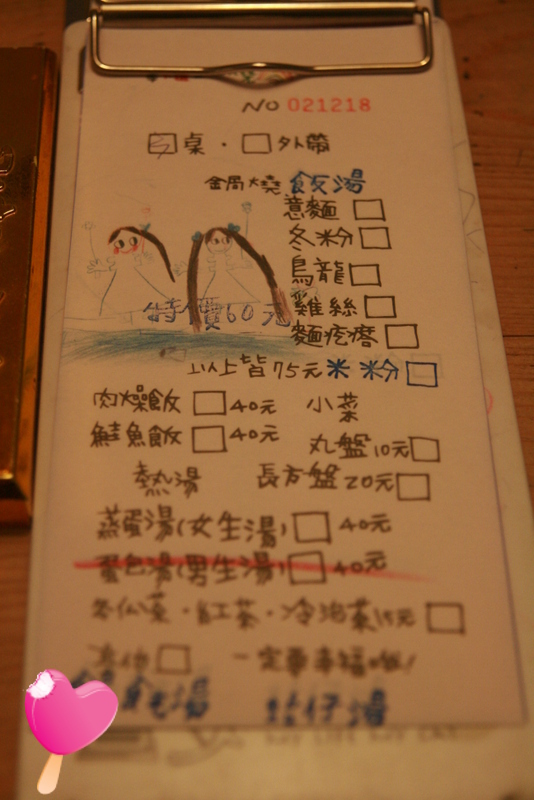 NO 021218
桌・外帶
鍋燒 飯湯
意麵
冬粉
烏龍
雞絲
特價60元
麵疙瘩
以上皆75元 米粉
肉燥飯 40元 小菜
鮭魚飯 40元
丸盤10元
熱湯 長方盤20元
蒸蛋湯(女生湯) 40元
蛋包湯(男生湯) 40元
冬瓜茶・紅茶・冷泡茶15元
其他 一定要幸福哦!
湯 湯